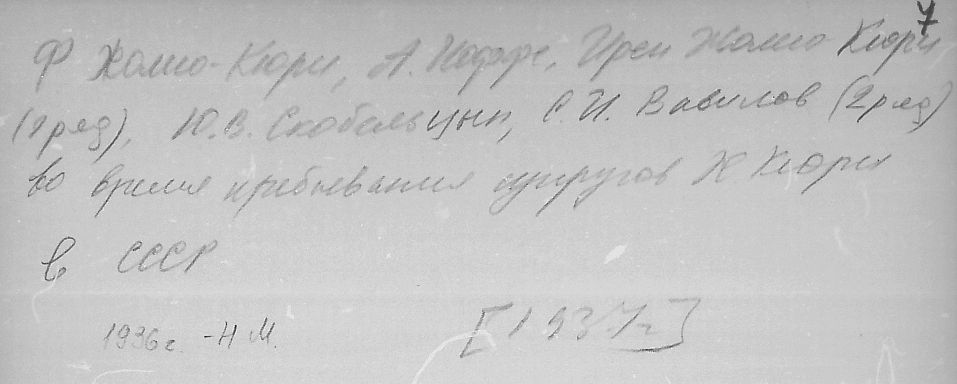 7
Ф Жолио-Кюри, А. Иоффе, Ирен Жолио Кюри
(1 ряд), Ю.В. Скобельцын, С.И. Вавилов (2 ряд)
во время пребывания супругов Ж Кюри
в СССР
1936 г. - Н М. [1937 г]